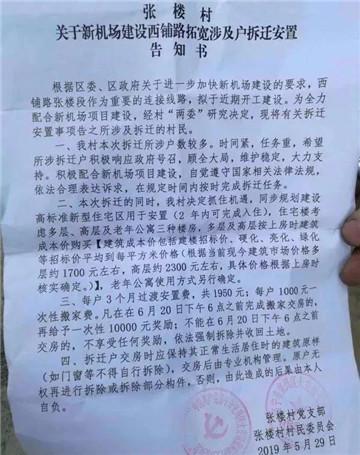 张楼村
关于新机场建设西铺路拓宽涉及户拆迁安置
告知书
根据区委、区政府关于进一步加快新机场建设的要求，西
铺路张楼段作为重要的连接线路，拟于近期开工建设。为全力
配合新机场项目建设，经村“两委”研究决定，现将有关拆迁
安置事项告之所涉及拆迁的村民。
一、我村本次拆迁所涉户数较多。时间紧、任务重，希望
所涉拆迁户积极响应政府号召，顾全大局，维护稳定，大力支
持。积极配合新机场项目建设，自觉遵守国家相关法律法规，
依法合理表达诉求，在规定时间内按时完成拆迁任务。
二、本次拆迁的同时，我村决定抓住机遇，同步规划建设
高标准新型住宅区用于安置（2 年内可完成入住），住宅楼考
虑多层、高层及老年公寓三种楼房，多层及高层按上房时建筑
成本价购买【建筑成本价包括建楼招标价、硬化、亮化、绿化
等招标价平均到每平方米价格（根据当前现今建筑市场价格多
层约 1700 元左右，高层约 2300 元左右，具体价格根据上房时
核实确定。）】，老年公寓使用方式另行确定。
三、每户 3 个月过渡安置费，共 1950 元；每户 1000 元一
次性搬家费。凡在在 6 月 20 日下午 6 点之前完成搬家交房的，
再给予一次性 10000 元奖励；不能在 6 月 20 日下午 6 点之前
交房的，不享受任何奖励，依法强制拆除并收回土地。
四、拆迁户交房时应保持其正常生活居住时的建筑原样
（如门窗等不得自行拆除），交房后由专业机构管理。原户无
权再进行拆除或拆除部分构件，否则，由此造成的后果由本人
自负。
张楼村党支部
张楼村村民委员会
2019 年 5 月 29 日